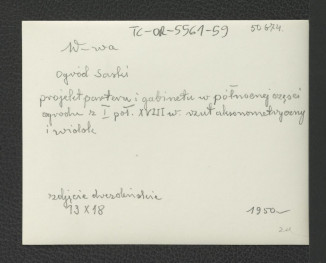 TC-OR-5561-59
50674.
W-wa
Ogród Saski
projekt parteru i gabinetu w północnej części
ogrodu z I poł. XVIII w rzut aksonometryczny
i widok
zdjęcie drezdeńskie
13 X 18
1950